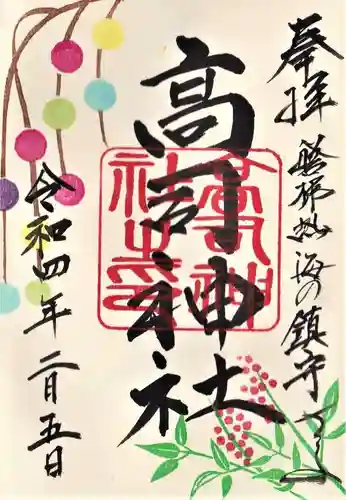 奉拝 磐梯熱海の鎮守
高司神社
高司神
社之印
令和四年二月五日